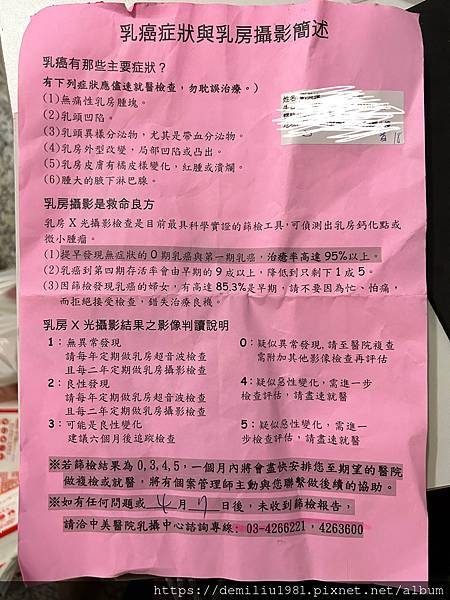 乳癌症狀與乳房攝影簡述
乳癌有那些主要症狀？
有下列症狀應儘速就醫檢查，勿耽誤治療。)
(1)無痛性乳房腫塊。
(2)乳頭凹陷。
(3)乳頭異樣分泌物，尤其是帶血分泌物。
(4)乳房外型改變，局部凹陷或凸出。
(5)乳房皮膚有橘皮樣變化，紅腫或潰爛。
(6)腫大的腋下淋巴腺。
姓名
乳房攝影是救命良方
乳房 X 光攝影檢查是目前最具科學實證的篩檢工具，可偵測出乳房鈣化點或
微小腫瘤。
(1)提早發現無症狀的 0 期乳癌與第一期乳癌，治癒率高達 95%以上。
(2)乳癌到第四期存活率會由早期的 9 成以上，降低到只剩下 1 成 5。
(3)因篩檢發現乳癌的婦女，有高達 85.3%是早期，請不要因為忙、怕痛，
而拒絕接受檢查，錯失治療良機。
乳房 X 光攝影結果之影像判讀說明
1：無異常發現
請每年定期做乳房超音波檢查
且每二年定期做乳房攝影檢查
2：良性發現
請每年定期做乳房超音波檢查
且每二年定期做乳房攝影檢查
3：可能是良性變化
建議六個月後追蹤檢查
0：疑似異常發現，請至醫院複查
需附加其他影像檢查再評估
4：疑似惡性變化，需進一步
檢查評估，請盡速就醫
5：疑似惡性變化，需進一
步檢查評估，請盡速就醫
※若篩檢結果為 0,3,4,5，一個月內將會盡快安排您至期望的醫院
做複檢或就醫，將有個案管理師主動與您聯繫做後續的協助。
※如有任何問題或 4 月 7 日後，未收到篩檢報告，
請洽中美醫院乳攝中心諮詢專線：03-4266221，4263600
https://demiliu1981.pixnet.net/album